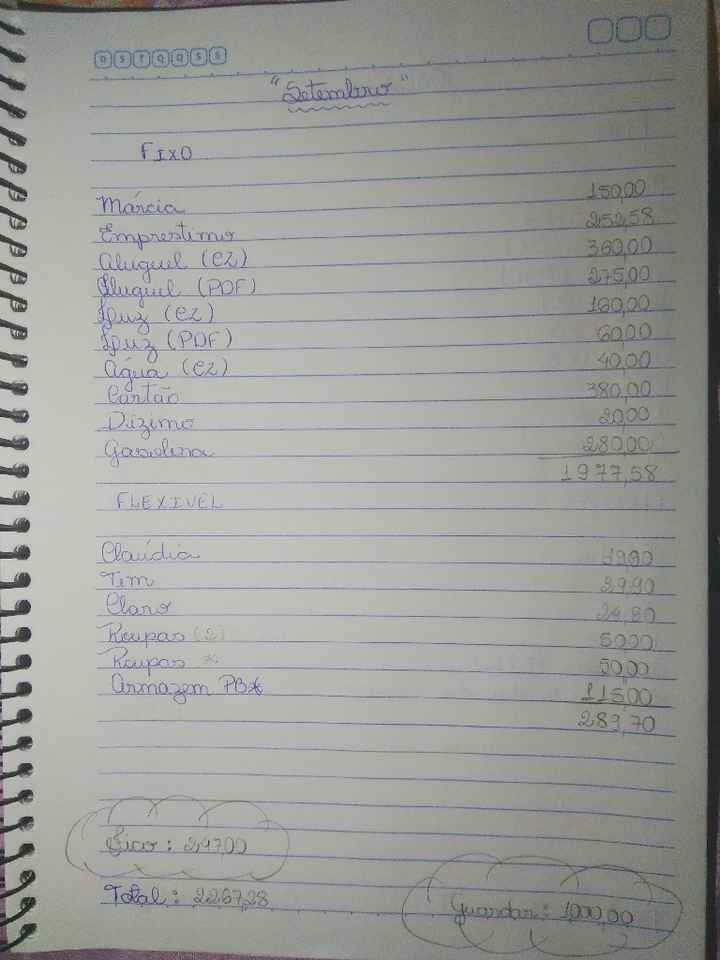 D S T Q Q S S
"Setembro"
FIXO
Márcia 150,00
Emprestimo 252,58
Aluguel (CZ) 360,00
Aluguel (PDF) 275,00
Luz (CZ) 160,00
Luz (PDF) 60,00
Água (CZ) 40,00
Cartão 380,00
Dízimo 20,00
Gasolina 280,00
1977,58
FLEXIVEL
Claúdia 19,90
Tim 29,90
Claro 24,90
Roupas (2) 50,00
Roupas * 50,00
Armazem PB* 115,00
289,70
Total: 2267,28
Guardar: 1000,00